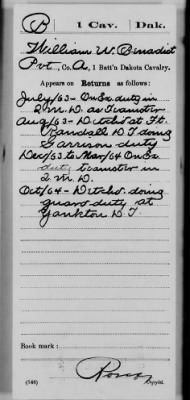 B | 1 Cav. | Dak.
William W. Benedict
Pvt., Co. A, 1 Batt'n Dakota Cavalry.
Appears on Returns as follows:
July/63 - On Ex. duty in
Q.M.D. as Teamster
Aug/63 - Detchd at Ft.
Randall D.T. doing
Garrison duty
Dec/63 to Mar/64 On Ex
duty teamster in
Q.M.D.
Oct/64 - Detchd. doing
guard duty at
Yankton D.T.
Book mark:
(546)
Copyist.